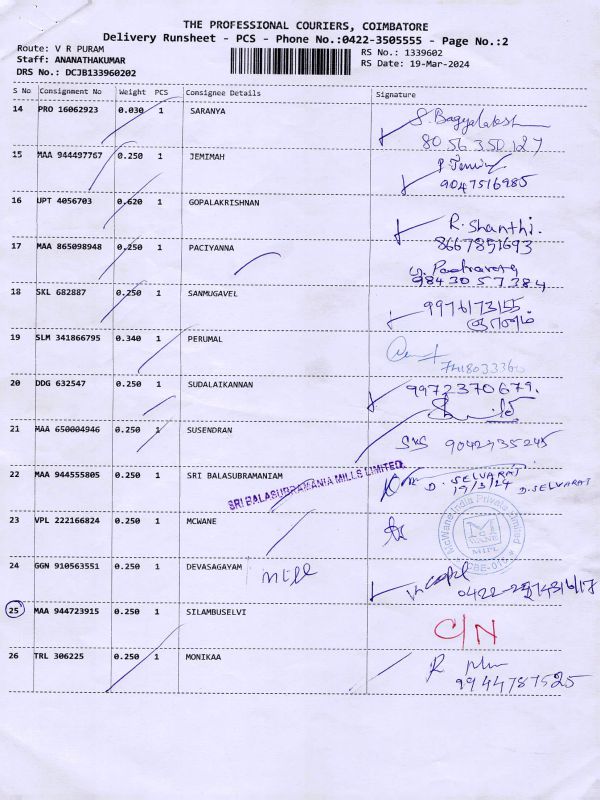 THE PROFESSIONAL COURIERS, COIMBATORE
Delivery Runsheet - PCS - Phone No.:0422-3505555 - Page No.:2
Route: V R PURAM
RS No.: 1339602
Staff: ANANATHAKUMAR
RS Date: 19-Mar-2024
DRS No.: DCJB133960202
S No Consignment No Weight PCS Consignee Details Signature
14 PRO 16062923 0.030 1 SARANYA
80 56 350 127
15 MAA 944497767 0.250 1 JEMIMAH
9047516985
16 UPT 4056703 0.620 1 GOPALAKRISHNAN R. Shanthi.
8667851693
17 MAA 865098948 0.250 1 PACIYANNA
9843057384
18 SKL 682887 0.250 1 SANMUGAVEL 9976173155
19 SLM 341866795 0.340 1 PERUMAL
20 DDG 632547 0.250 1 SUDALAIKANNAN 9972370679.
21 MAA 650004946 0.250 1 SUSENDRAN
22 MAA 944555805 0.250 1 SRI BALASUBRAMANIAM D. SELVARAJ
19/3/24 D. SELVARAJ
SRI BALASUBRAMANIA MILLS LIMITED.
23 VPL 222166824 0.250 1 MCWANE
McWane India Private Limited
McWANE
MIPL
24 GGN 910563551 0.250 1 DEVASAGAYAM
25 MAA 944723915 0.250 1 SILAMBUSELVI C/N
26 TRL 306225 0.250 1 MONIKAA
9944787525